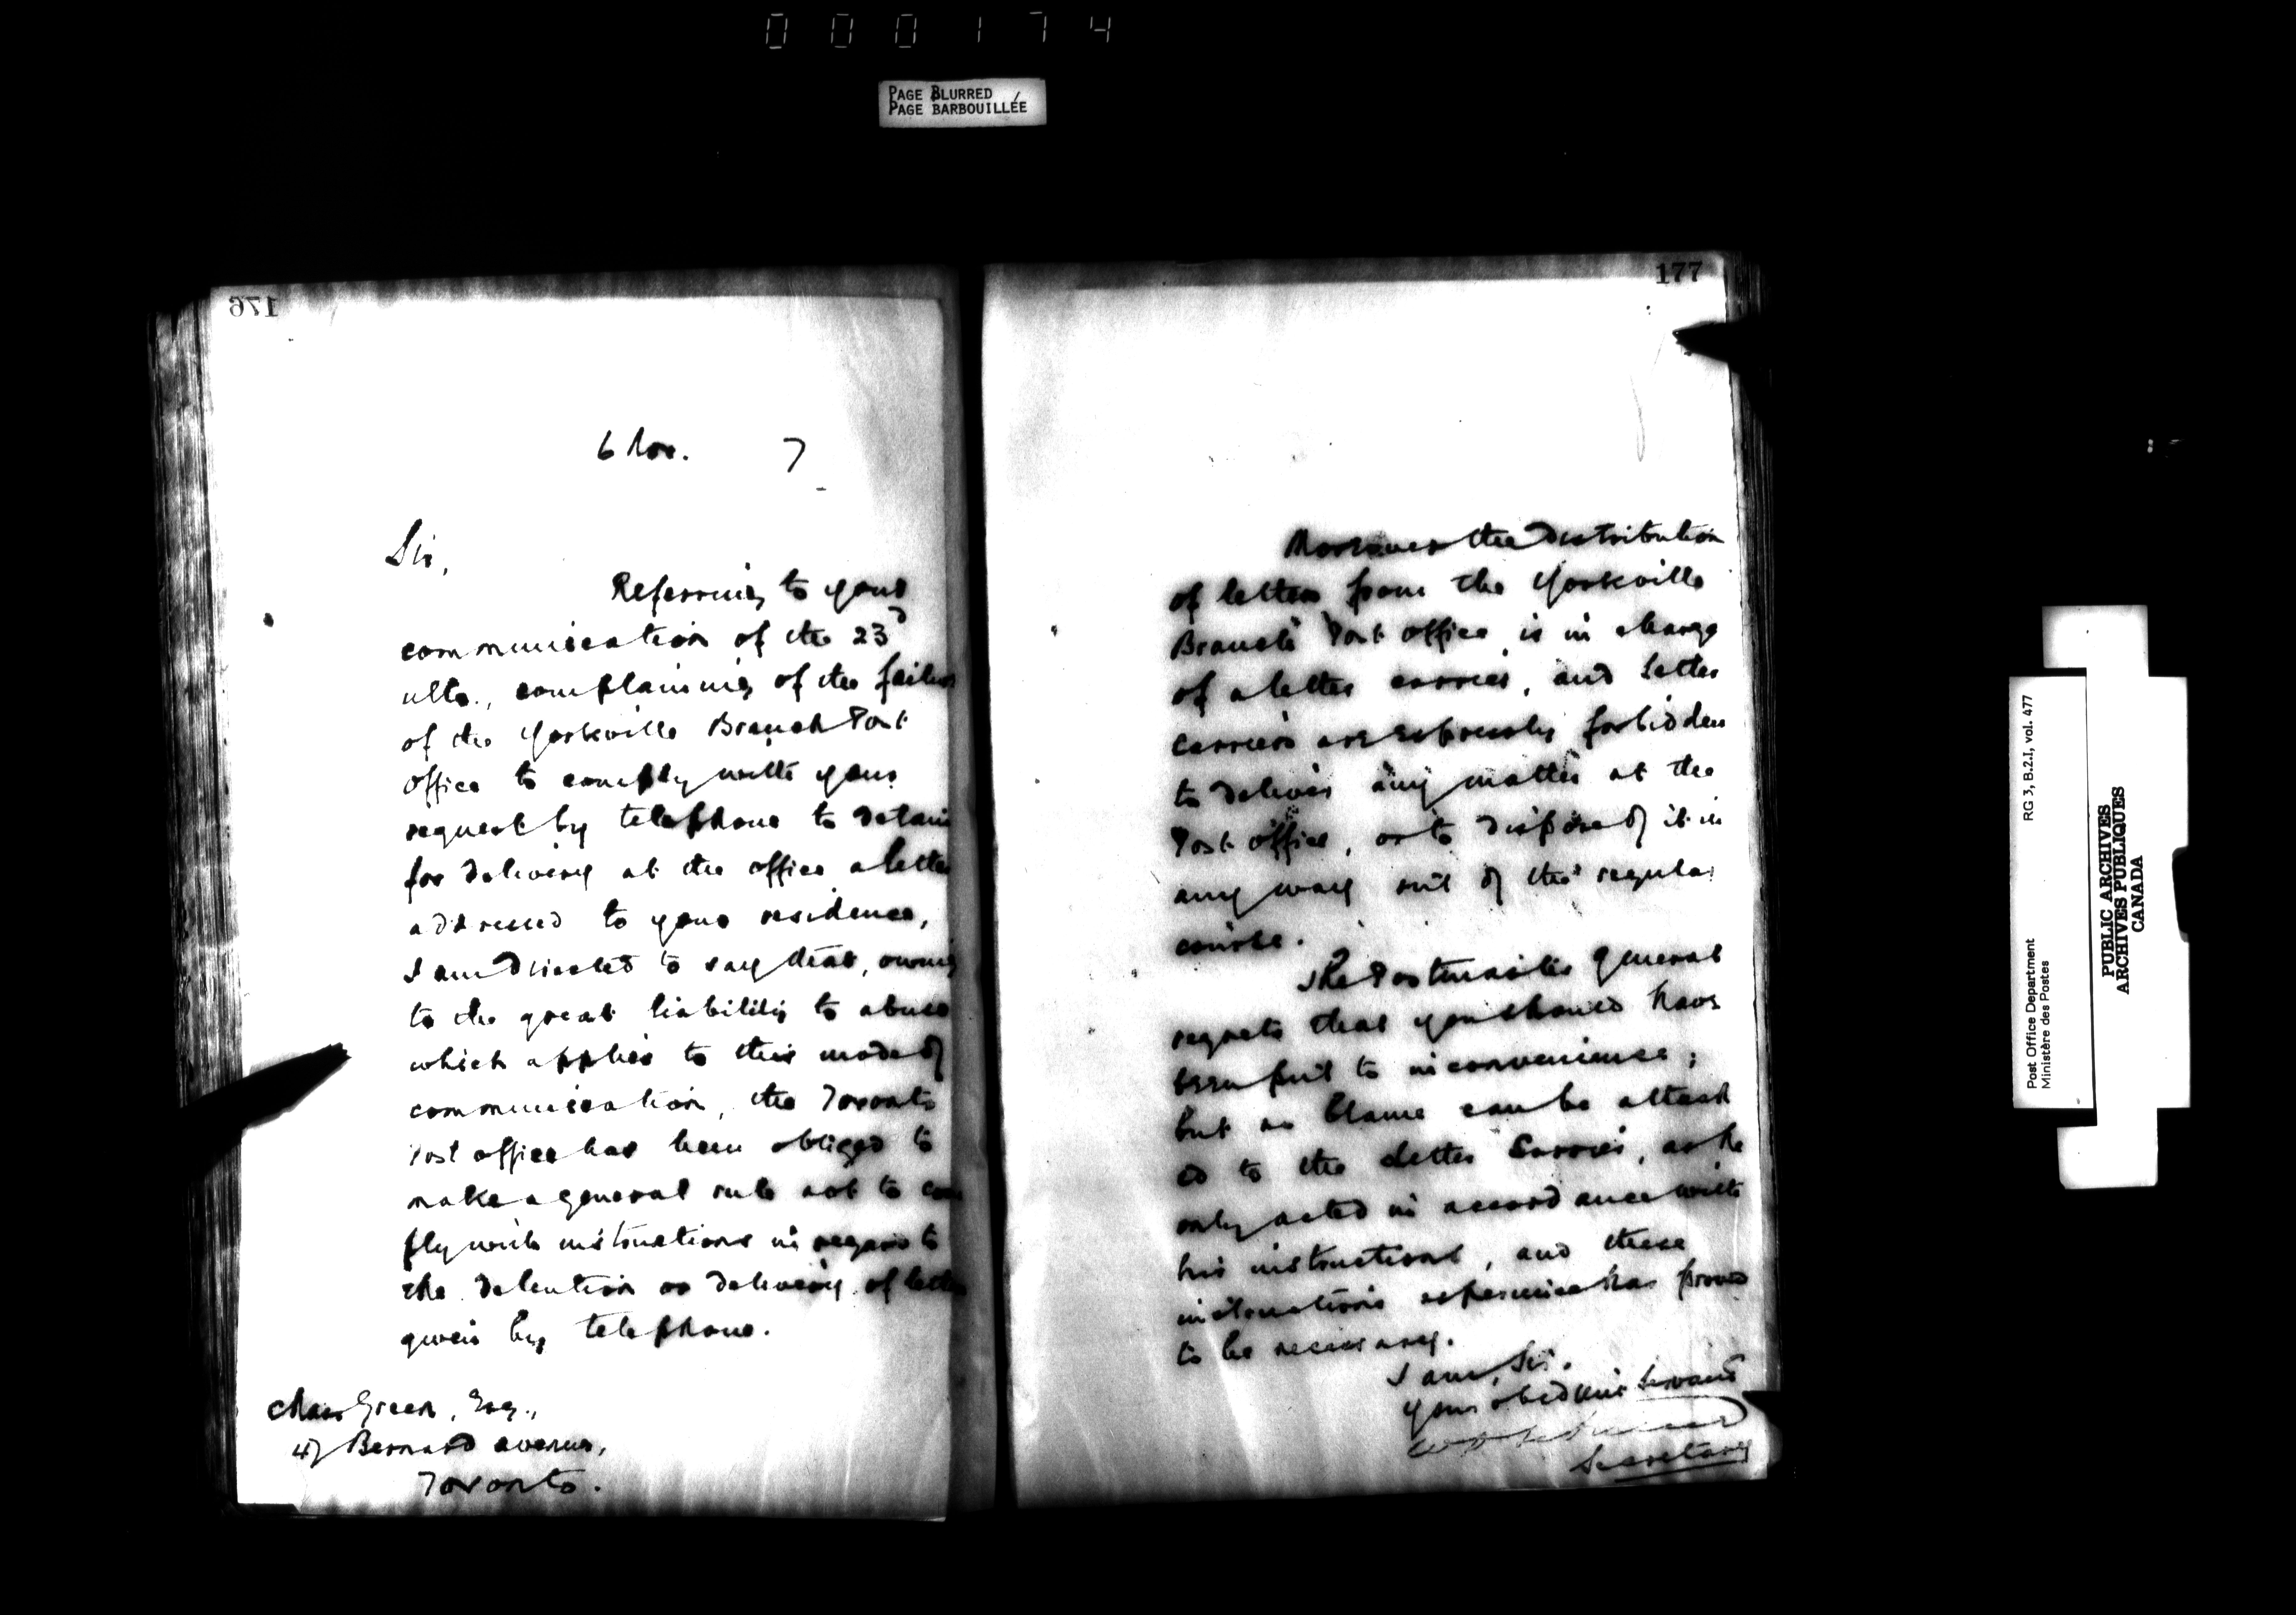 000174
PAGE BLURRED
PAGE BARBOUILLÉE
176
6 Nov. 7
Sir,
Referring to your
communication of the 23d
ulto., complaining of the failure
of the Yorkville Branch Post
Office to comply with your
request by telephone to detain
for delivery at the office a letter
addressed to your residence,
I am directed to say that, owing
to the great liability to abuse
which applies to this mode of
communication, the Toronto
Post office has been obliged to
make a general rule not to com
ply with instructions in regard to
the detention or delivery of letters
given by telephone.
Chas Green, Esq.,
47 Bernard avenue,
Toronto.
177
Moreover the distribution
of letters from the Yorkville
Branch Post Office is in charge
of a letter carrier, and letter
carriers are expressly forbidden
to deliver any matter at the
Post office, or to dispose of it in
any way out of the regular
course.
The Postmaster General
regrets that you should have
been put to inconvenience;
but no blame can be attach
ed to the Letter Carrier, as he
only acted in accordance with
his instructions, and these
instructions experience has proved
to be necessary.
I am, Sir,
Your obedient Servant
Secretary
Post Office Department
Ministère des Postes
RG 3, B.2.I, vol. 477
PUBLIC ARCHIVES
ARCHIVES PUBLIQUES
CANADA